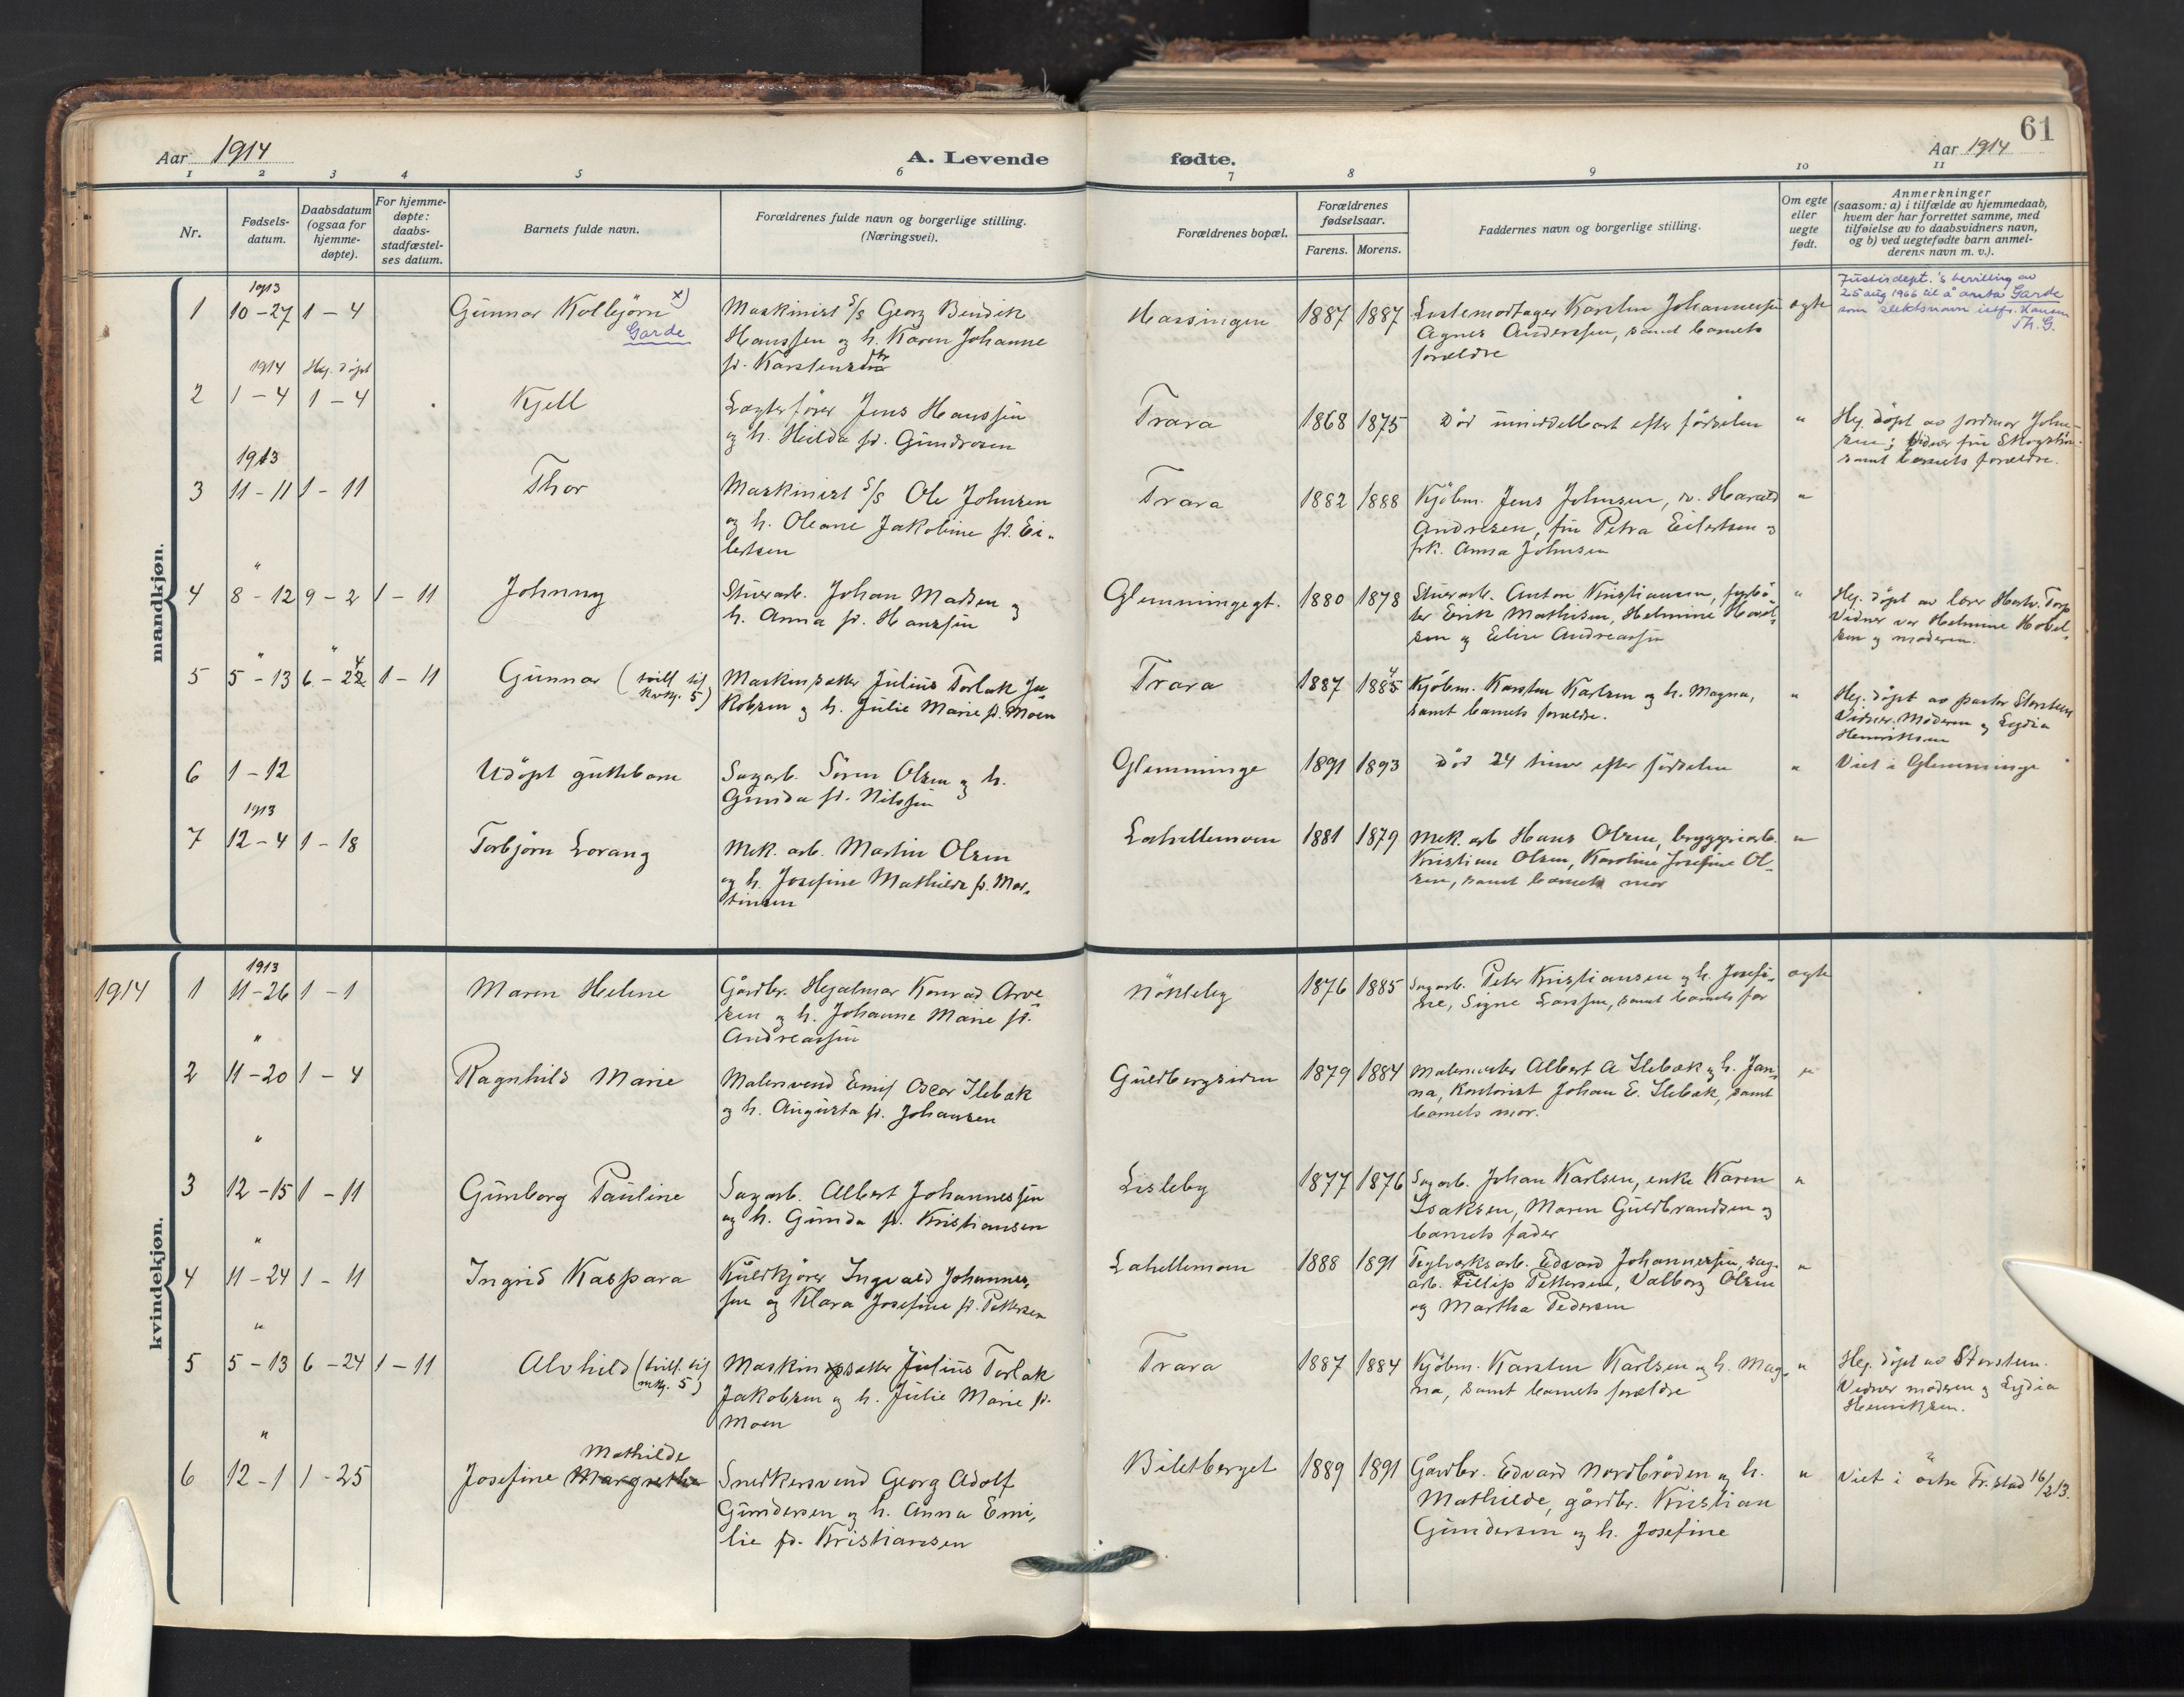 61
Aar 1914
A. Levende
fødte.
Aar 1914
1 2 3 4 5 6 7 8 9 10 11
Nr.
Fødsels-
datum.
Daabsdatum
(ogsaa for
hjemme-
døpte).
For hjemme-
døpte:
daabs-
stadfæstel-
ses datum.
Barnets fulde navn.
Forældrenes fulde navn og borgerlige stilling.
(Næringsvei).
Forældrenes bopæl.
Forældrenes
fødselsaar.
Farens. Morens.
Faddernes navn og borgerlige stilling.
Om egte
eller
uegte
født.
Anmerkninger
(saasom: a) i tilfælde av hjemmedaab,
hvem der har forrettet samme, med
tilføielse av to daabsvidners navn,
og b) ved uegtefødte barn anmel-
derens navn m. v.).
mandkjøn.
1913
1 10-27 1-4 Gunnar Kolbjørn x)
Garde
Maskinist S/S Georg Bendik
Hanssen og h. Karen Johanne
f. Karstensdtr
Hassingen 1887 1887
Karsten Johannessen
Agnes Anderssen, samt barnets
forældre
egte
Justisdept.'s bevilling av
25 aug 1966 til å anta Garde
som slektsnavn istf. Hansen
Th. G.
1914 Hj. døpt
2 1-4 1-4 Kjell
Lægterfører Jens Hanssen
og h. Hilda f. Gundrosen
Trara 1868 1875 Død umiddelbart efter fødselen "
Hj. døpt av jordmor John-
sen; Vidner fru
samt barnets forældre.
1913
3 11-11 1-11 Thor
Maskinist S/S Ole Johnsen
og h. Oleane Jakobine f. Ei-
lertsen
Trara 1882 1888
Kjøbm. Jens Johnsen, Harald
Andresen, fru Petra Eilertsen og
frk. Anna Johnsen
"
"
4 8-12 9-2 1-11 Johnny
Stuerarb. Johan Madsen og
h. Anna f. Hanssen
Glemmingegt. 1880 1878
Stuerarb. Anton Kristiansen, fyrbø-
ter Erik Mathisen, Helmine
sen og Elise Andreassen
"
Hj. døpt av lærer Torp
Vidner var Helmine
sen og moderen.
" "
5 5-13 6-24 1-11 Gunnar (tvill. til
kvkj. 5)
Maskinsætter Julius Torlak Ja-
kobsen og h. Julie Marie f. Moen
Trara 1887 1884
Kjøbm. Karsten Karlsen og h. Magna,
samt barnets forældre.
"
Hj. døpt av pastor Storsteen
Vidner. Moderen og Lydia
Henriksen
6 1-12 Udøpt guttebarn
Sagarb. Søren Olsen og h.
Gunda f. Nilssen
Glemminge 1891 1893 Død 24 timer efter fødselen "
Viet i Glemminge
1913
7 12-4 1-18 Torbjørn Lorang
Mek. arb. Martin Olsen
og h. Josefine Mathilde f. Mar-
tinsen
Lahellemoen 1881 1879
Mek. arb Hans Olsen, bryggeriarb.
Kristian Olsen, Karoline Josefine Ol-
sen, samt barnets mor
"
kvindekjøn.
1914
1913
1 11-26 1-1 Maren Helene
Gårdbr. Hjalmar Konrad Arve-
sen og h. Johanne Marie f.
Andreassen
Nøkleby 1876 1885
Sagarb. Peter Kristiansen og h. Josefi-
ne, Signe Larssen, samt barnets far
egte
"
2 11-20 1-4 Ragnhild Marie
Malersvend Emil Oscar Ilebæk
og h. Augusta f. Johansen
Guldbergsiden 1879 1884
Malermester Albert A Ilebæk og h. Jan-
na, Kontorist Johan E. Ilebæk, samt
barnets mor.
"
"
3 12-15 1-11 Gunborg Pauline
Sagarb. Albert Johannessen
og h. Gunda f. Kristiansen
Lisleby 1877 1876
Sagarb. Johan Karlsen, enke Karen
Isaksen, Maren Guldbrandsen og
barnets fader
"
"
4 11-24 1-11 Ingrid Kaspara
Kulkjører Ingvald Johannes-
sen og Klara Josefine f. Pettersen
Lahellemoen 1888 1891
Teglverksarb. Edvard Johannessen, sag-
arb. Fillip Pettersen, Valborg Olsen
og Martha Pedersen
"
"
5 5-13 6-24 1-11 Alvhild (tvill. til
mkj. 5)
Maskinsætter Julius Torlak
Jakobsen og h. Julie Marie f.
Moen
Trara 1887 1884
Kjøbm. Karsten Karlsen og h. Mag-
na, samt barnets forældre
"
Hj. døpt av Storsteen.
Vidner moderen og Lydia
Henriksen.
"
Mathilde
6 12-1 1-25 Josefine Margrethe
Snedkersvend Georg Adolf
Gundersen og h. Anna Emi-
lie f. Kristiansen
Biletberget 1889 1891
Gårdbr. Edvard Nordbrøden og h.
Mathilde, gårdbr. Kristian
Gundersen og h. Josefine
"
Viet i østre Fr.stad 16/2 13.